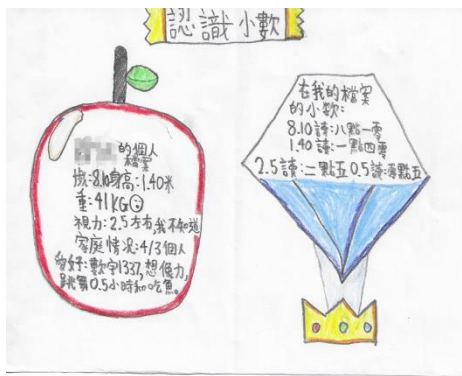 認識小數
的個人
檔案
歲:8.10身高:1.40米
重:41KG
視力:2.5左右,我不知道
家庭情況:4/3個人
愛好:數字1337,想像力,
跳舞0.5小時和吃魚。
在我的檔案
的小數:
8.10讀:八點一零
1.40讀:一點四零
2.5讀:二點五 0.5讀:零點五